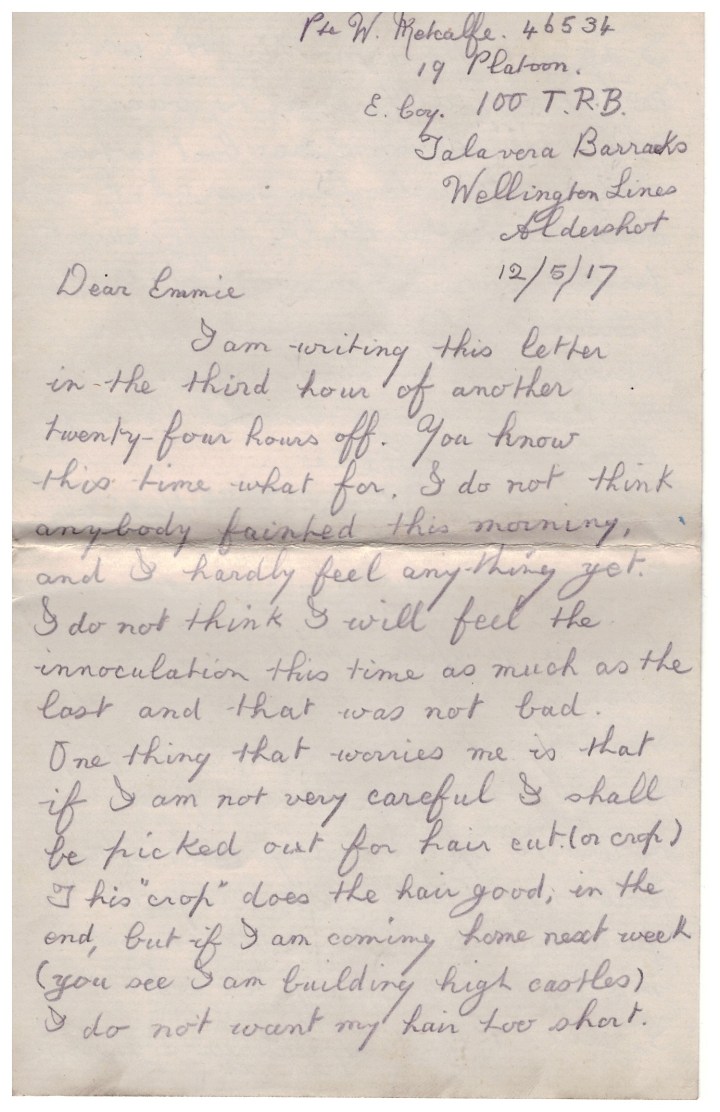 Pte W. Metcalfe. 46534
19 Platoon.
E. Coy. 100 T.R.B.
Talavera Barracks
Wellington Lines
Aldershot
12/5/17
Dear Emmie
I am writing this letter
in the third hour of another
twenty-four hours off. You know
this time what for. I do not think
anybody fainted this morning,
and I hardly feel anything yet.
I do not think I will feel the
innoculation this time as much as the
last and that was not bad.
One thing that worries me is that
if I am not very careful I shall
be picked out for hair cut. (or crop)
This "crop" does the hair good, in the
end, but if I am coming home next week
(you see I am building high castles)
I do not want my hair too short.